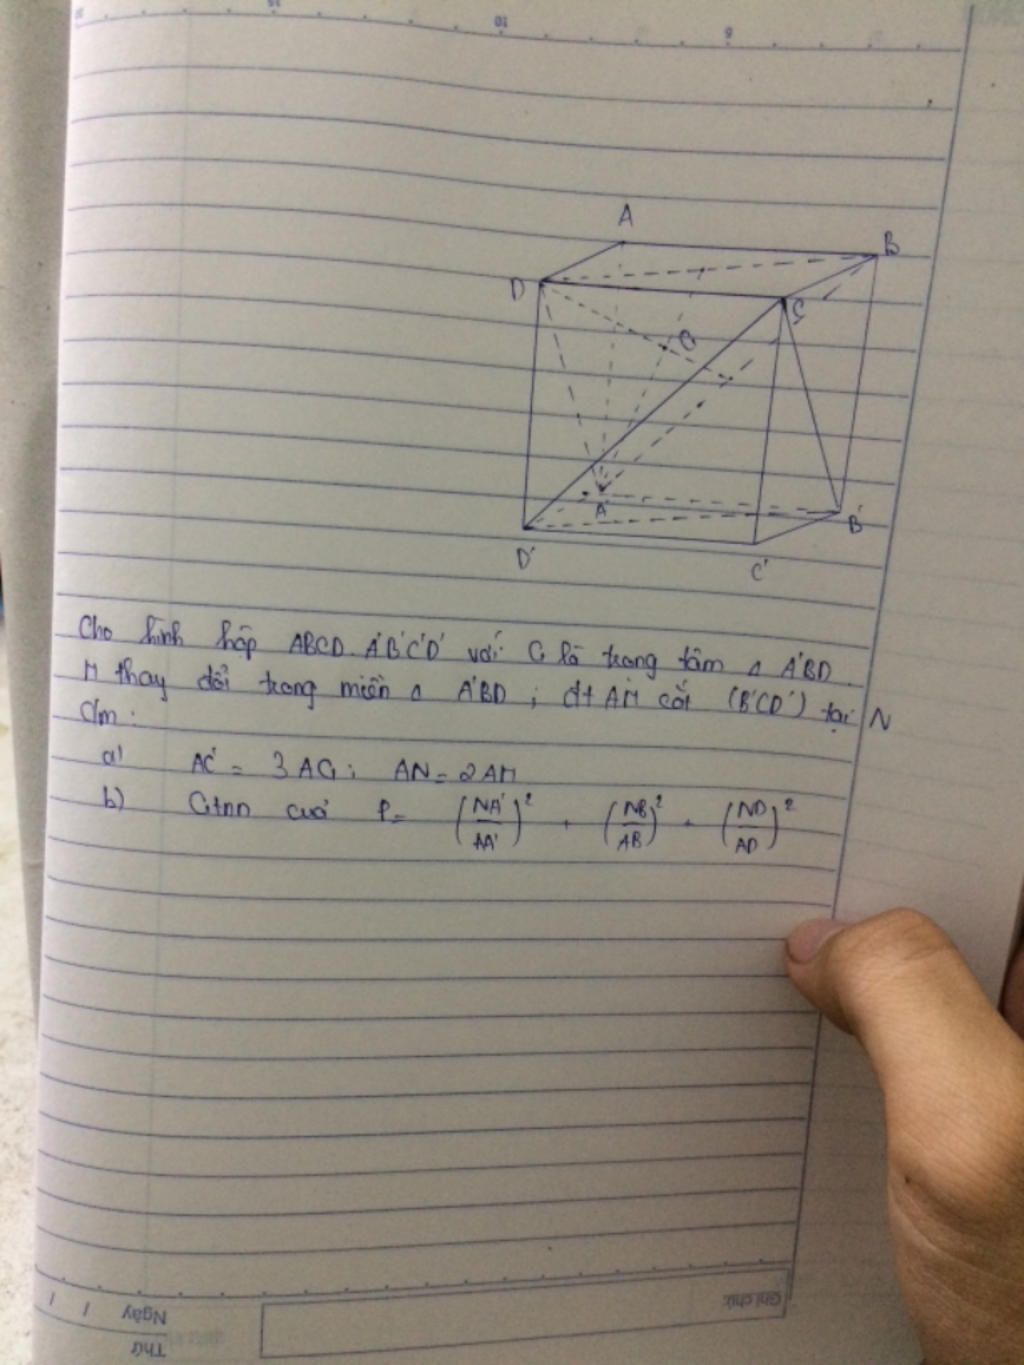 15
10
5
A
B
D
C
G
A'
B'
D'
C'
Cho hình hộp ABCD.A'B'C'D' với G là trong tâm Δ A'BD.
M thay đổi trong miền Δ A'BD ; đt AM cắt (B'CD') tại N
C/m :
a) AC' = 3AG ; AN = 2AM
b) Gtnn của P = (NA'/AA')² + (NB/AB)² + (ND/AD)²
Ghi chú:
Ngày / /
Thứ